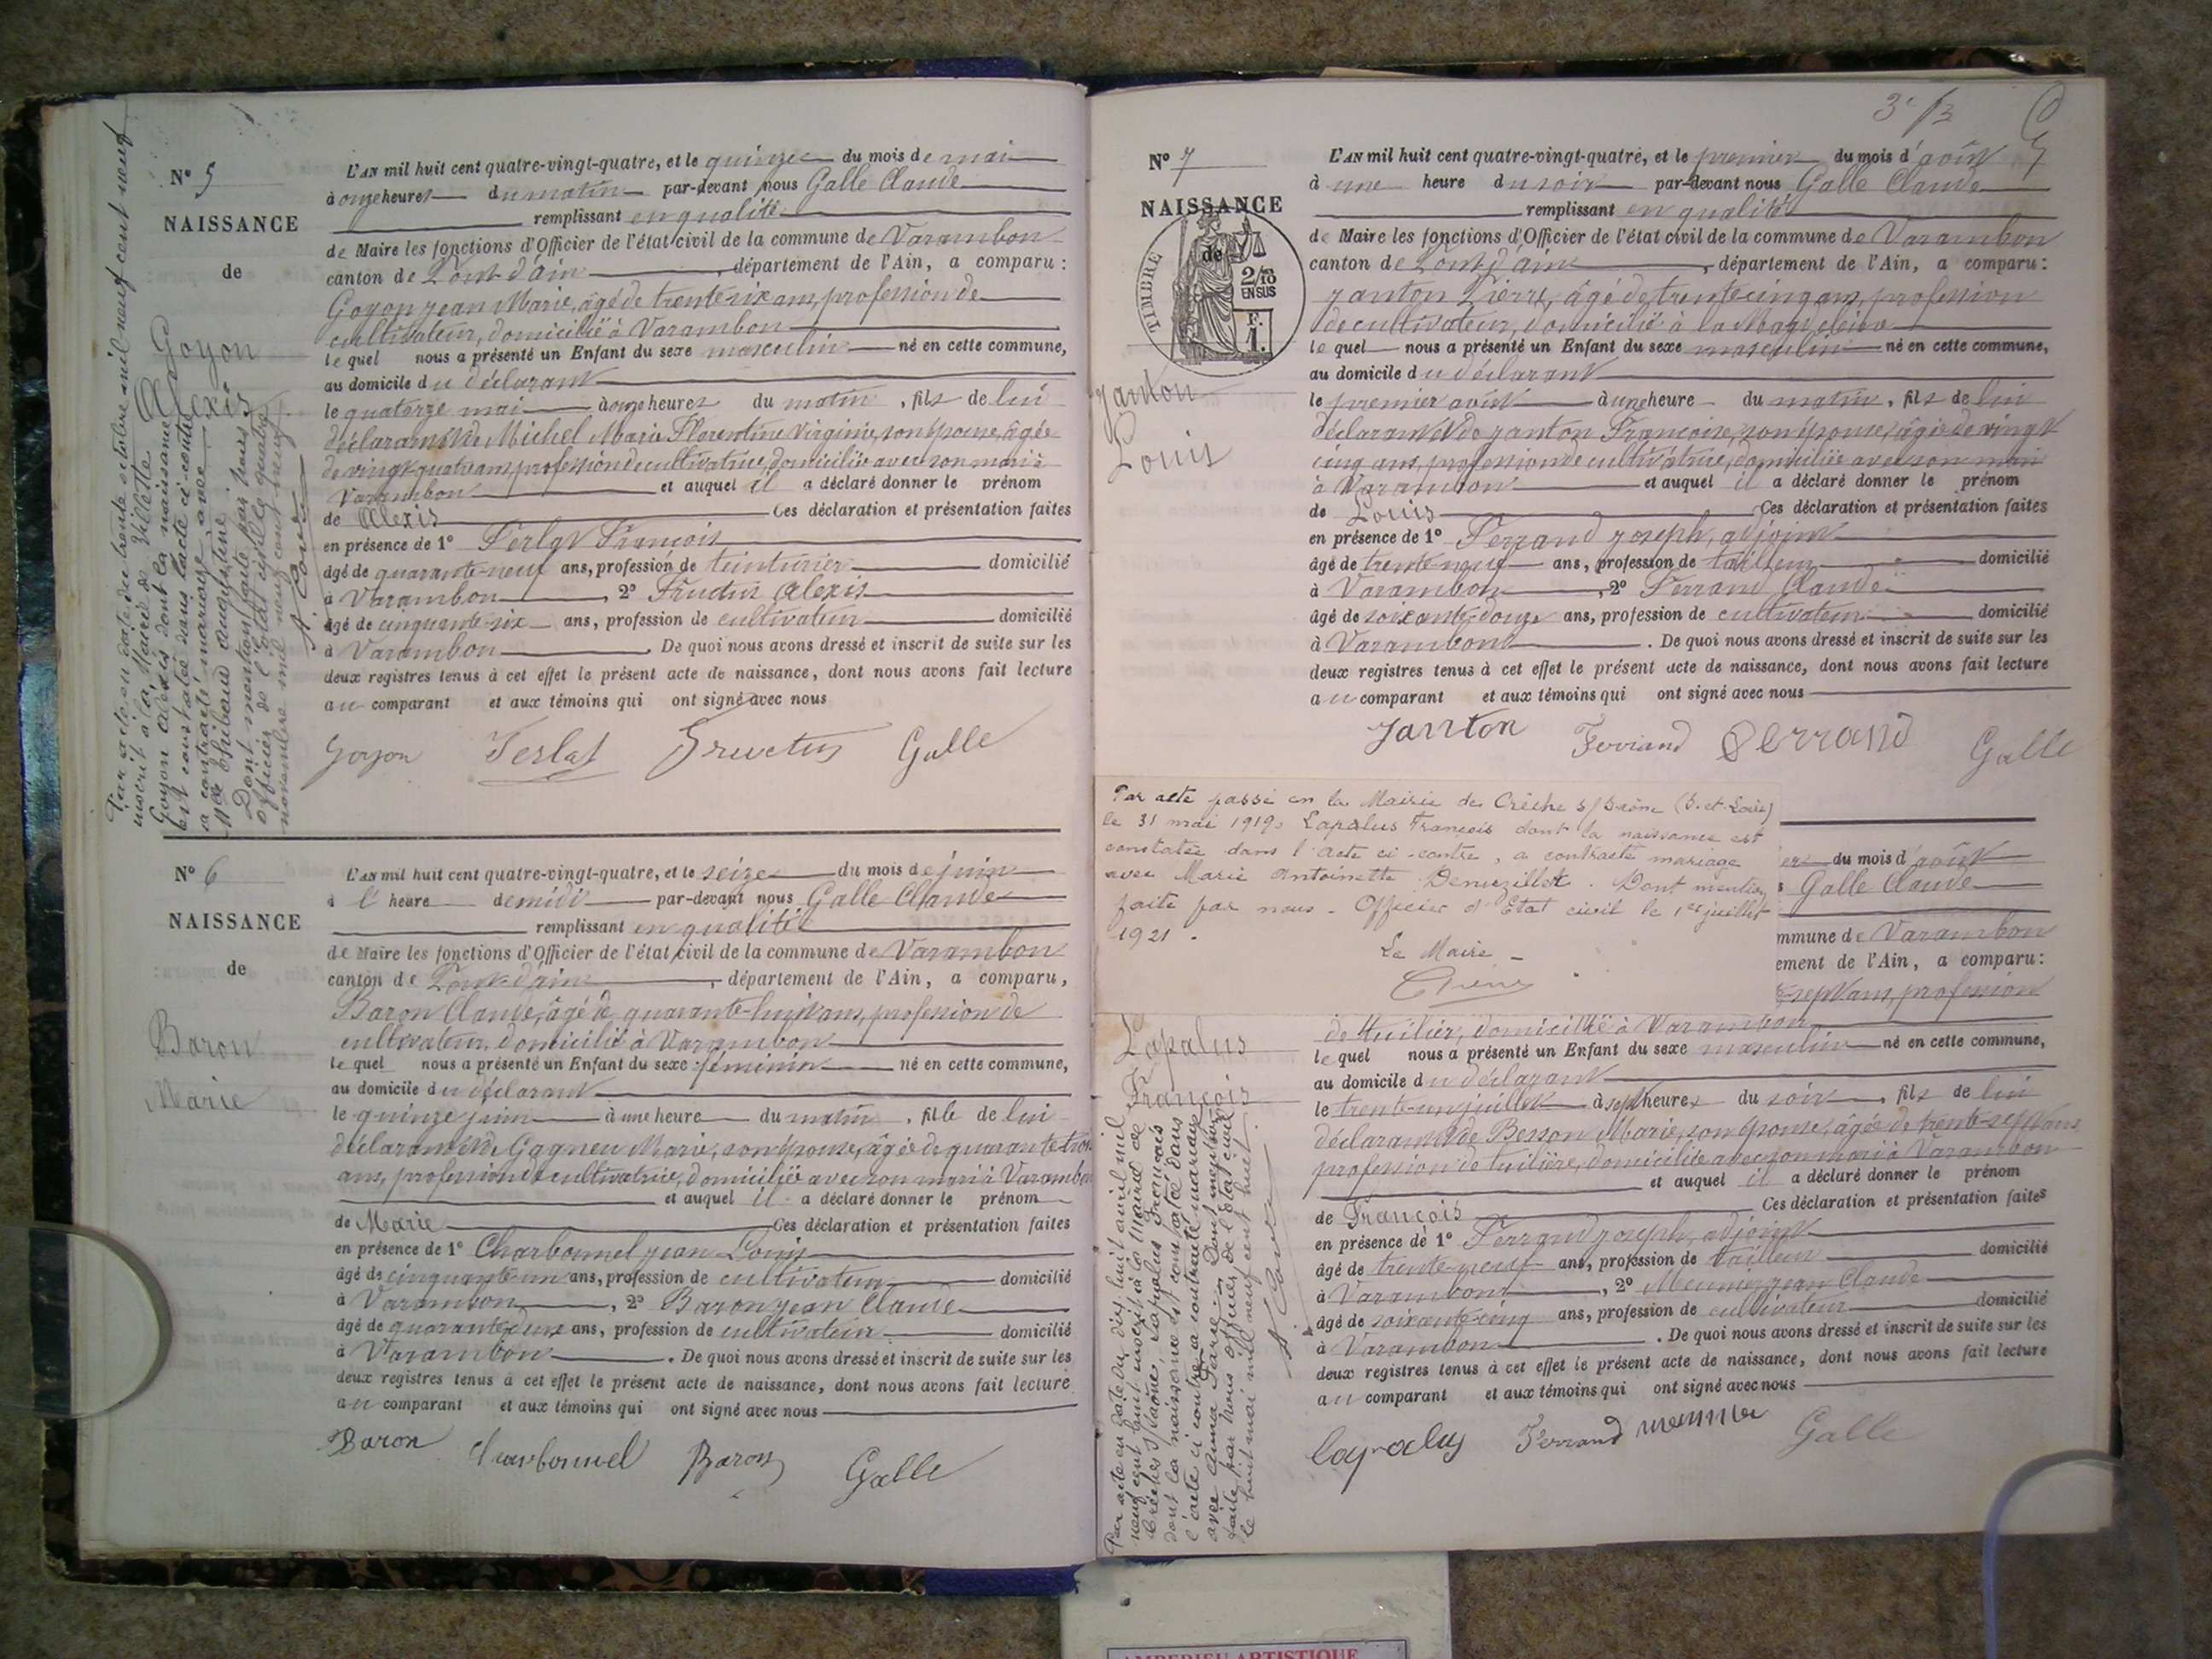 N° 5
NAISSANCE
de
Goyon
Alexis
Par acte en date du trente octobre mil neuf cent neuf
inscrit à la Mairie de Villette
Goyon Alexis dont la naissance
est constatée dans l'acte ci-contre
a contracté mariage avec
Mlle Thibaud Augustine
Dont mention faite par nous
officier de l'état civil le quatre
novembre mil neuf cent neuf
L'AN mil huit cent quatre-vingt-quatre, et le quinze du mois de mai
à onze heures du matin par-devant nous Galle Claude
remplissant en qualité
de Maire les fonctions d'Officier de l'état civil de la commune de Varambon
canton de Pont-d'ain, département de l'Ain, a comparu :
Goyon jean Marie, âgé de trente-six ans, profession de
cultivateur, domicilié à Varambon
lequel nous a présenté un Enfant du sexe masculin né en cette commune,
au domicile du déclarant
le quatorze mai à onze heures du matin, fils de lui
déclarant et de Michel Marie Florentine Virginie, son épouse, âgée
de vingt quatre ans, profession de cultivatrice, domiciliée avec son mari à
Varambon et auquel il a déclaré donner le prénom
de Alexis Ces déclaration et présentation faites
en présence de 1° Perlat François
âgé de quarante-neuf ans, profession de teinturier domicilié
à Varambon, 2° Fructus Alexis
âgé de cinquante-six ans, profession de cultivateur domicilié
à Varambon. De quoi nous avons dressé et inscrit de suite sur les
deux registres tenus à cet effet le présent acte de naissance, dont nous avons fait lecture
au comparant et aux témoins qui ont signé avec nous
Goyon Fructus Galle
N° 6
NAISSANCE
de
Baron
Marie
L'AN mil huit cent quatre-vingt-quatre, et le seize du mois de juin
à l'heure de midi par-devant nous Galle Claude
remplissant en qualité
de Maire les fonctions d'Officier de l'état civil de la commune de Varambon
canton de Pont-d'ain, département de l'Ain, a comparu,
Baron Claude, âgé de quarante-huit ans, profession de
cultivateur, domicilié à Varambon
lequel nous a présenté un Enfant du sexe féminin né en cette commune,
au domicile du déclarant
le quinze juin à une heure du matin, fille de lui
déclarant et de Gagneu Marie, son épouse, âgée de quarante-trois
ans, profession de cultivatrice, domiciliée avec son mari à Varambon
et auquel il a déclaré donner le prénom
de Marie Ces déclaration et présentation faites
en présence de 1° Charbonnel jean Louis
âgé de cinquante-un ans, profession de cultivateur domicilié
à Varambon, 2° Baron jean Claude
âgé de quarante-deux ans, profession de cultivateur domicilié
à Varambon. De quoi nous avons dressé et inscrit de suite sur les
deux registres tenus à cet effet le présent acte de naissance, dont nous avons fait lecture
au comparant et aux témoins qui ont signé avec nous
Baron Charbonnel Baron Galle
N° 7
NAISSANCE
de
TIMBRE
2/10
EN SUS
F.
1.
Janton
Louis
L'AN mil huit cent quatre-vingt-quatre, et le premier du mois d'août
à une heure du soir par-devant nous Galle Claude
remplissant en qualité
de Maire les fonctions d'Officier de l'état civil de la commune de Varambon
canton de Pont-d'ain, département de l'Ain, a comparu :
janton Pierre, âgé de trente-cinq ans, profession
de cultivateur, domicilié à
lequel nous a présenté un Enfant du sexe masculin né en cette commune,
au domicile du déclarant
le premier août à une heure du matin, fils de lui
déclarant et de janton Françoise, son épouse, âgée de vingt
cinq ans, profession de cultivatrice, domiciliée avec son mari
à Varambon et auquel il a déclaré donner le prénom
de Louis Ces déclaration et présentation faites
en présence de 1° Ferrand joseph, adjoint
âgé de trente-neuf ans, profession de tailleur domicilié
à Varambon, 2° Ferrand Claude
âgé de soixante-douze ans, profession de cultivateur domicilié
à Varambon. De quoi nous avons dressé et inscrit de suite sur les
deux registres tenus à cet effet le présent acte de naissance, dont nous avons fait lecture
au comparant et aux témoins qui ont signé avec nous
Janton Ferrand Ferrand Galle
Par acte passé en la Mairie de Crèche s/Saône (S. et Loire)
le 31 mai 1919, Lapalus François dont la naissance est
constatée dans l'acte ci-contre, a contracté mariage
avec Marie Antoinette Denuzillet. Dont mention
faite par nous - Officier d'Etat civil le 1er juillet
1921 -
Le Maire -
ers du mois d'août
Galle Claude
mmune de Varambon
ement de l'Ain, a comparu :
sept ans, profession
Lapalus
François
Par acte en date du dix huit avril mil
neuf cent huit inscrit à la Mairie de
Crèches s/Saône, Lapalus François
dont la naissance est constatée dans
l'acte ci contre, a contracté mariage
avec Dont mention
faite par nous officier de l'état civil
le huit mai mil neuf cent huit.
de tuilier, domicilié à Varambon
lequel nous a présenté un Enfant du sexe masculin né en cette commune,
au domicile du déclarant
le trente-un juillet à sept heures du soir, fils de lui
déclarant et de Besson Marie, son épouse, âgée de trente-sept ans
profession de tuilière, domiciliée avec son mari à Varambon
et auquel il a déclaré donner le prénom
de François Ces déclaration et présentation faites
en présence de 1° Ferrand joseph, adjoint
âgé de trente-neuf ans, profession de tailleur domicilié
à Varambon, 2° Meunier jean Claude
âgé de soixante-cinq ans, profession de cultivateur domicilié
à Varambon. De quoi nous avons dressé et inscrit de suite sur les
deux registres tenus à cet effet le présent acte de naissance, dont nous avons fait lecture
au comparant et aux témoins qui ont signé avec nous
Lapalus Ferrand meunier Galle
AMBERIEU ARTISTIQUE